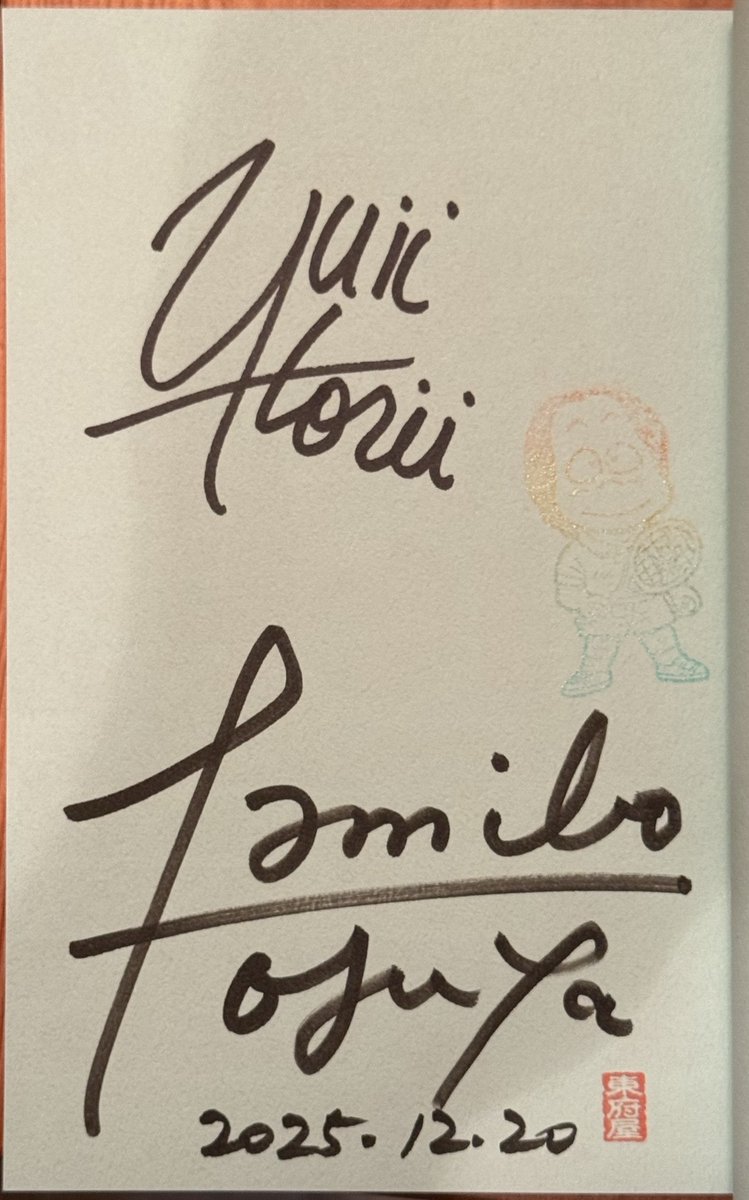 Yuii
torii
Tamibo
Tofuya
2025.12.20
東府屋